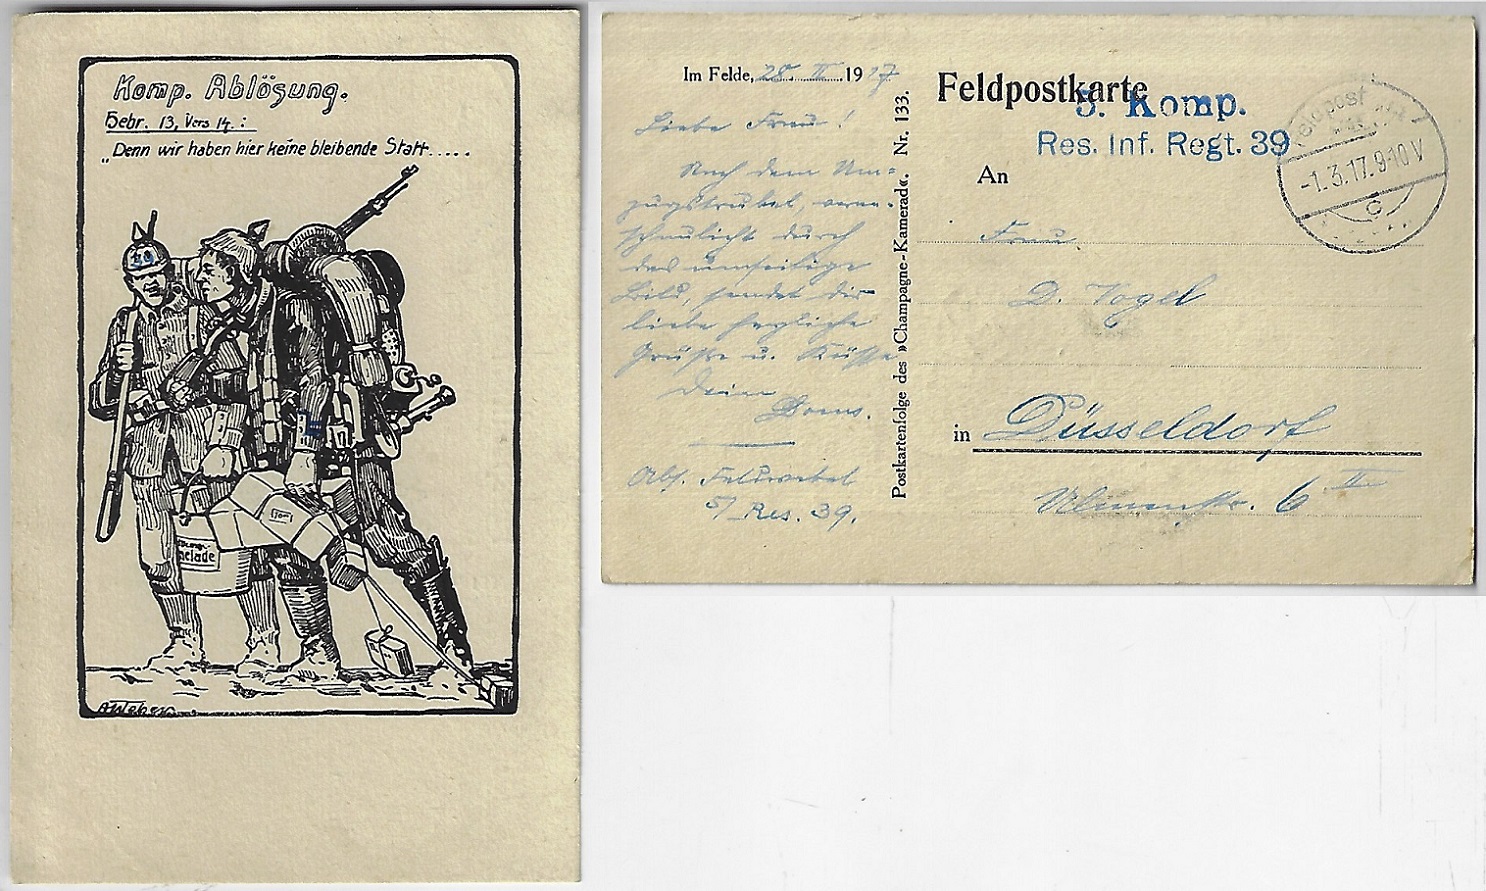 Komp. Ablösung.
Hebr. 13, Vers 14.:
„Denn wir haben hier keine bleibende Statt.....
39
nelade
AWeber
Im Felde, 28. II 1917
Liebe Frau!
Nach dem Um=
zugstrubel, veran=
schaulicht durch
das umseitige
Bild, sendet dir
liebe herzliche
Grüße u. Küsse
Dein
Abs. Feldwebel
5/ Res. 39.
Postkartenfolge des »Champagne-Kamerad«. Nr. 133.
Feldpostkarte
5. Komp.
Res. Inf. Regt. 39
Feldpost
-1.3.17.9-10V
c
An
Frau
D. Vogel
in Düsseldorf
Ulmenstr. 6 II